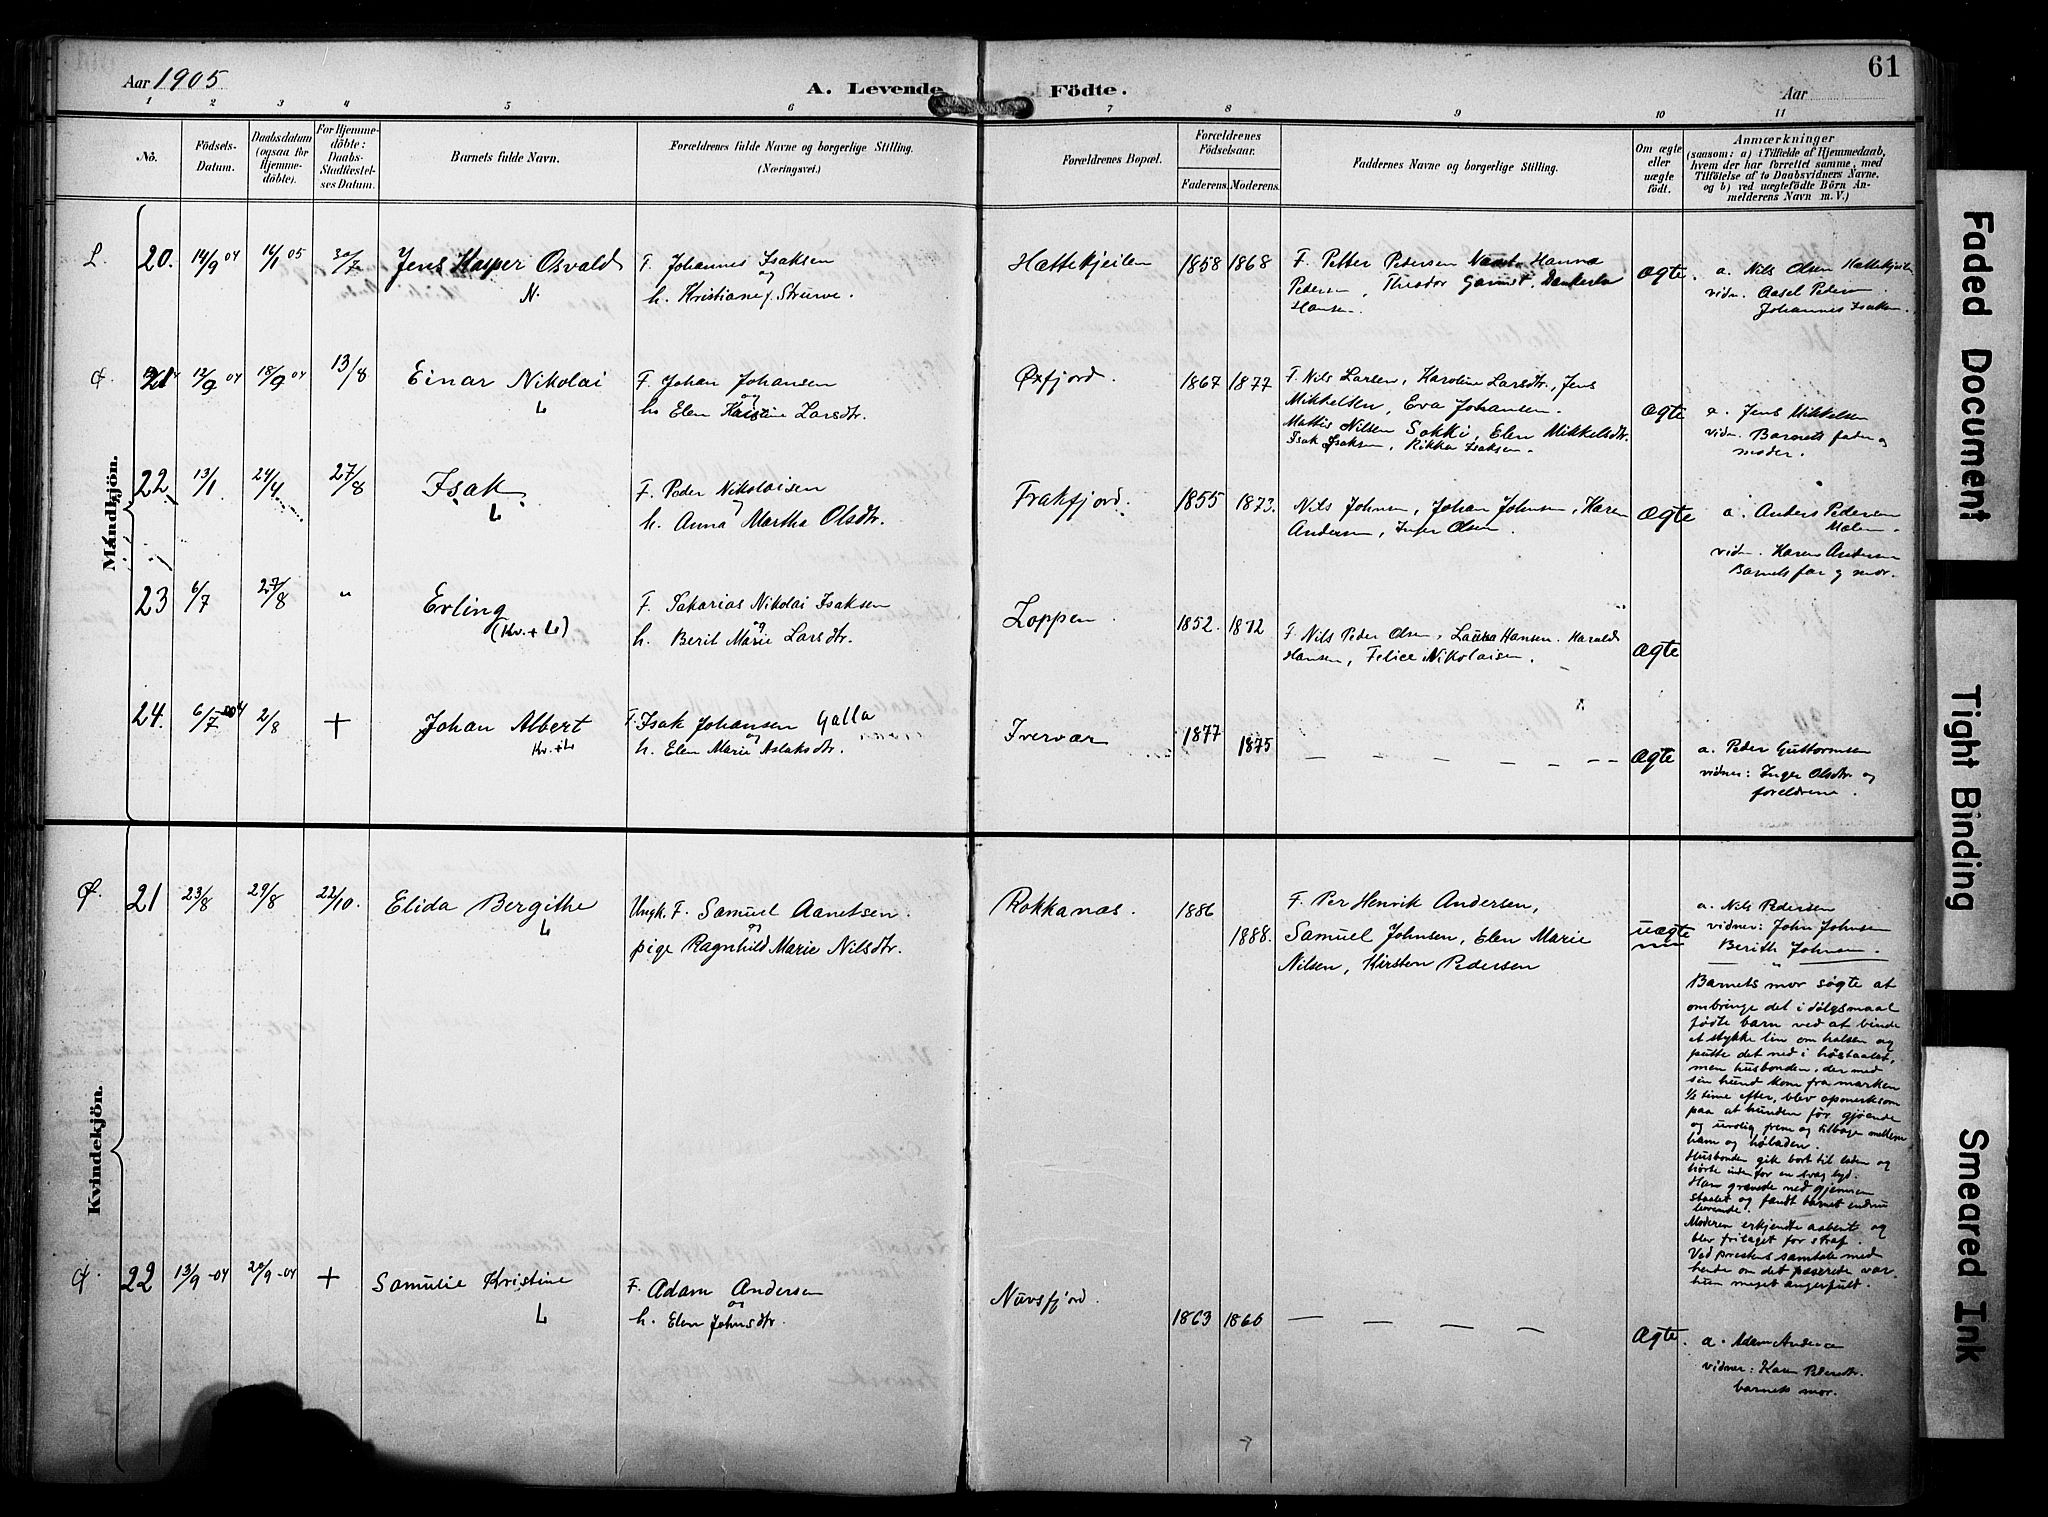 Aar 1905
A. Levende Födte.
61
Aar
1 2 3 4 5 6 7 8 9 10 11
No.
Födsels-Datum.
Daabsdatum (ogsaa for Hjemme-döbte).
For Hjemme-döbte: Daabs-Stadfæstel-ses Datum.
Barnets fulde Navn.
Forældrenes fulde Navne og borgerlige Stilling.
(Næringsvei.)
Forældrenes Bopæl.
Forældrenes Födselsaar.
Faderens. Moderens.
Faddernes Navne og borgerlige Stilling.
Om ægte eller uægte födt.
Anmærkninger
(saasom: a) i Tilfælde af Hjemmedaab,
hvem der har forrettet samme, med
Tilföielse af to Daabsvidners Navne,
og b) ved uægtefödte Börn An-
melderens Navn m. V.)
Mandkjön.
L. 20. 14/9 04 16/1 05 30/7 Jens Kasper Osvald
N.
F. Johannes Isaksen
og
h. Kristiane f. Struve.
Hættekjeilen 1858 1868
F. Petter Pedersen Hanna
Pedersen, Theodor
Hansen.
Ægte.
a. Nils Olsen Hættekjeilen
vidn. Aasel Pedersen
Johannes Isaksen.
21 12/9 04 18/9 04 13/8 Einar Nikolai
L
F. Johan Johansen
og
h. Elen Kristine Larsdtr.
Øxfjord. 1867 1877
F. Nils Larsen, Karoline Larsdtr., Jens
Mikkelsen, Eva Johansen.
Mattis Nilsen Sokki, Elen Mikkelsdtr.
Isak Isaksen, Rikka Isaksen.
Ægte
a. Jens Mikkelsen
vidn. Barnets fader og
moder.
22 13/1 24/4 27/8 Isak
L
F. Peder Nikolaisen
og
h. Anna Martha Olsdtr.
Frakfjord. 1855 1873.
Nils Johnsen, Johan Johnsen, Karen
Andersen, Inger Olsen.
Ægte
a. Anders Pedersen
vidn. Karen Andersen
Barnets far og mor.
23 6/7 27/8 " Erling
(Kv. + L)
F. Sakarias Nikolai Isaksen
og
h. Berit Marie Larsdtr.
Loppen. 1852. 1872
F. Nils Peder Olsen, Laura Hansen. Harald
Hansen, Felice Nikolaisen.
Ægte
24. 6/7 2/8 + Johan Albert
Kv. + L.
F. Isak Johansen Galla
og
h. Elen Marie Aslaksdtr.
Ivervær 1877 1875
– – – – – –
Ægte
a. Peder Guttormsen
vidner: Inger Olsdtr. og
foreldrene.
Kvindekjön.
Ø. 21 23/8 29/8 22/10. Elida Bergithe
L
Ungk. F. Samuel Aanetsen.
og
pige Ragnhild Marie Nilsdtr.
Rokkanas. 1886 1888.
F. Per Henrik Andersen,
Samuel Johnsen, Elen Marie
Nilsen, Kirsten Pedersen
uægte
a. Nils Pedersen
vidner: John Johnsen
Berith Johnsen.
"
Barnets mor søgte at
ombringe det i dølgsmaal
fødte barn ved at binde
et stykke lin om halsen og
putte det ned i høstaalet,
men husbonden, der med
sin hund kom fra marken
1/2 time efter, blev opmerksom
paa at hunden før gjøende
og urolig frem og tilbage mellem
ham og høladen.
Husbonden gik bort til laden og
hørte indenfor en svag lyd.
Han gravede ned gjennem
staalet og fandt barnet endnu
levende.
Moderen erkjendte aabent og
blev fritaget for straf.
Ved prestens samtale med
hende om det passerede var
hun meget angerfuld.
Ø. 22 13/9-04 20/9-04 + Samulie Kristine
L
F. Adam Andersen
og
h. Elen Johnsdtr.
Nuvsfjord. 1863 1866
– – – – –
Ægte.
a. Adam Andersen
vidner: Karen Pedersdtr.
barnets mor.
Faded Document
Tight Binding
Smeared Ink